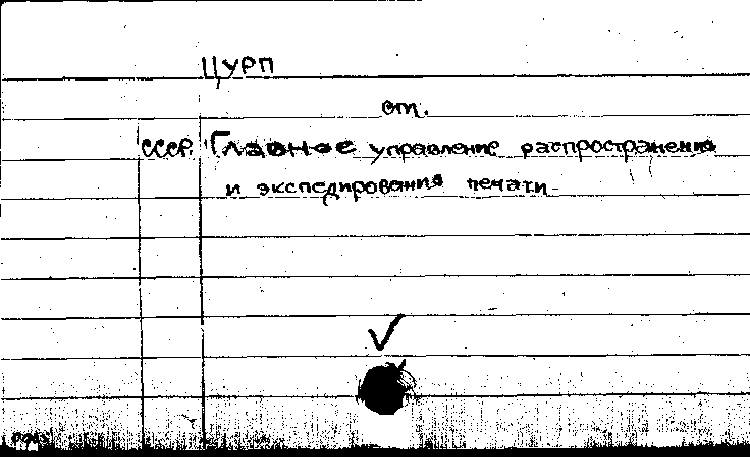 ЦУРП
см.
СССР. Главное управление распространения
и экспедирования печати